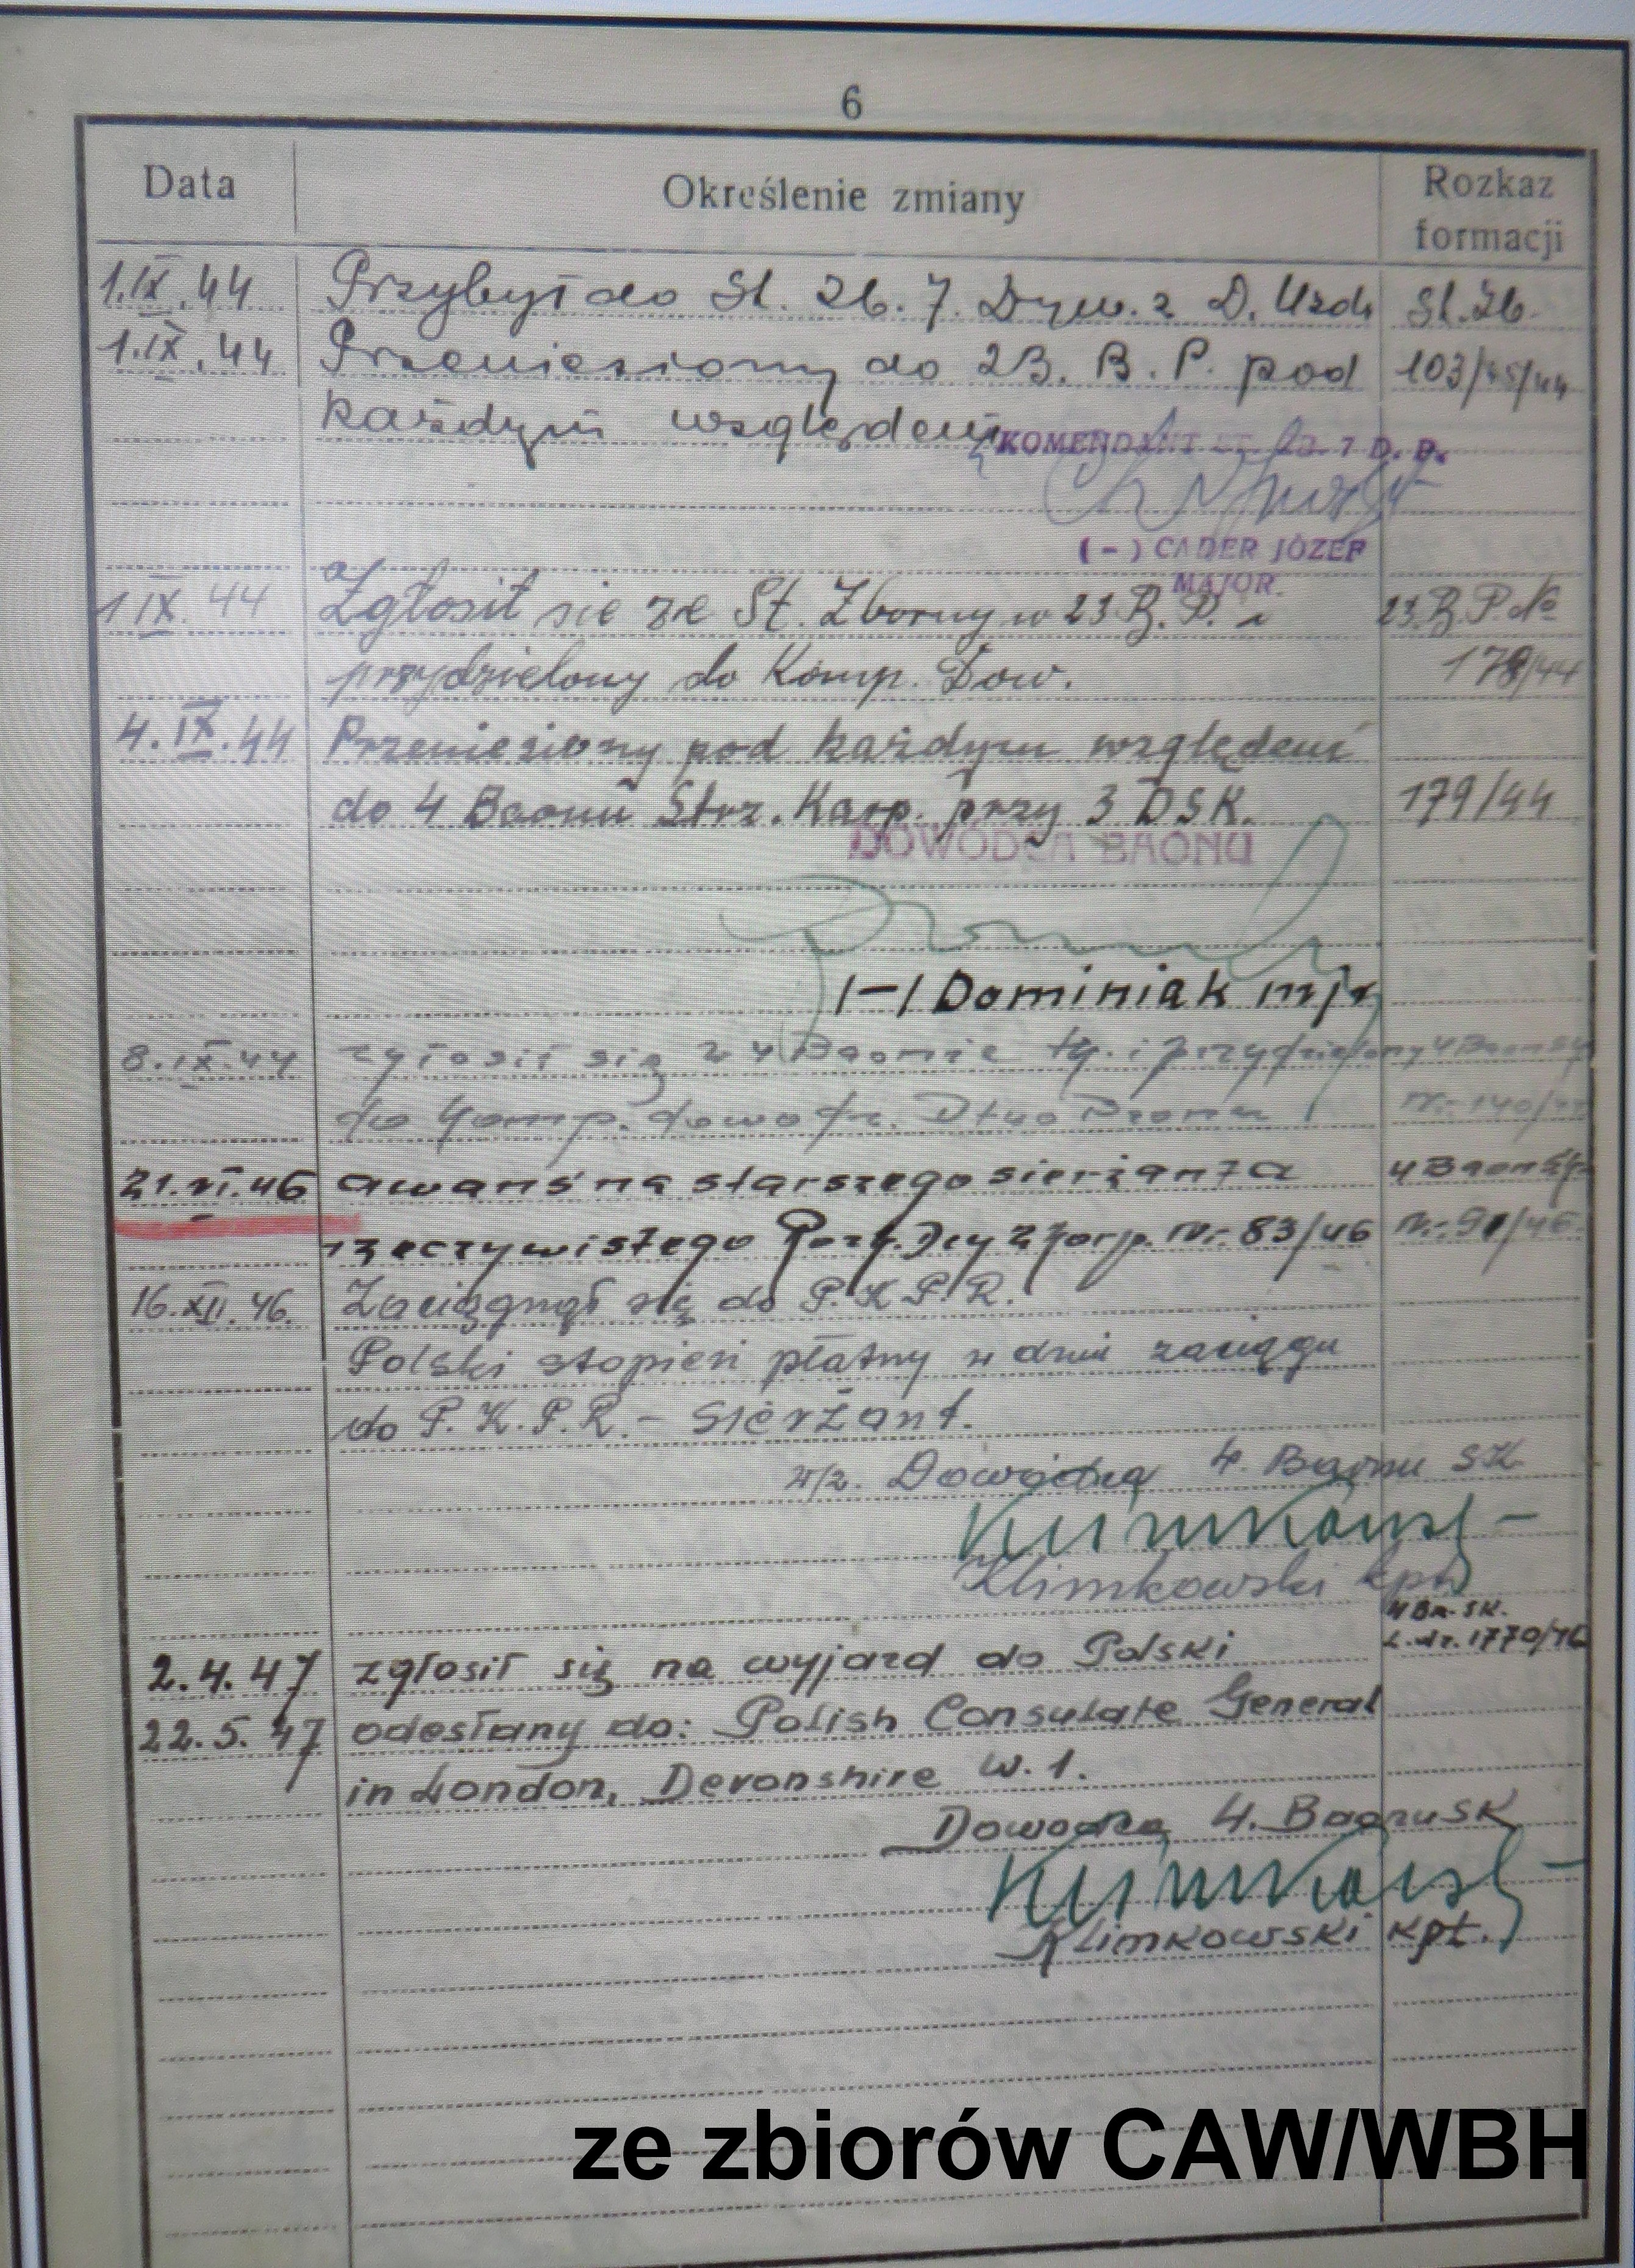 6
Data Określenie zmiany Rozkaz formacji
1.IX.44 Przybył do St. Zb. 7. Dyw. z D. Uzdr St.Zb.
1.IX.44 Przeniesiony do 23. B. P. pod 103/45/44
każdym względem
KOMENDANT ST. ZB. 7 D. P.
(-) CADER JÓZEF
MAJOR.
1 IX. 44 Zgłosił się ze St. Zborny w 23 B. P. i 23.B.P. No
przydzielony do Komp. Dow. 178/44
4.IX.44 Przeniesiony pod każdym względem
do 4 Baonu Strz. Karp. przy 3 DSK. 179/44
DOWÓDCA BAONU
/-/ Dominiak mjr
8.IX.44 zgłosił się z 4 Baonie i przydzielony 4 Baon
do Komp. dowodz. Dtwo Baonu Nr. 140/44
21.VI.46 awans na starszego sierżanta 4 Baon
rzeczywistego Rozk. Dcy 2 Korp. Nr. 83/46 Nr. 91/46.
16.XII.46. Zaciągnął się do P.K.P.R.
Polski stopień płatny w dniu zaciągu
do P.K.P.R. - Sierżant.
w/z. Dowódca 4. Baonu SK
Klimkowski kpt.
4 Ba. SK.
L.dz. 1770/46
2.4.47 zgłosił się na wyjazd do Polski
22.5.47 odesłany do: Polish Consulate General
in London, Devonshire W.1.
Dowódca 4. Baonu SK
Klimkowski kpt.
ze zbiorów CAW/WBH